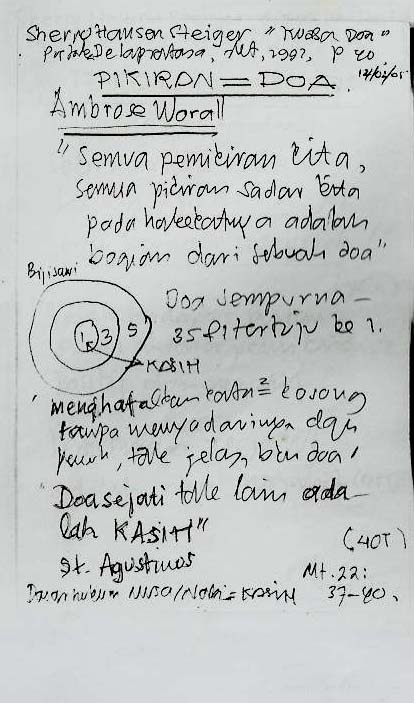 Sherry Hansen Steiger, "Kuasa Doa"
2002, P 40
14/02/05
PIKIRAN = DOA
Ambrose Worall
"Semua pemikiran kita,
semua pikiran sadar kita
pada hakekatnya adalah
bagian dari sebuah doa"
Biji sawi
Doa sempurna -
35 fitertuju ke 1.
1 3 5
KASIH
"menghafalkan kata2 = kosong
tanpa menyadarinya dan
jelas, bkn doa'
"Doa sejati tdk lain ada-
lah KASIH"
(40T)
St. Agustinus
Mt. 22:
37-40.
= KASIH